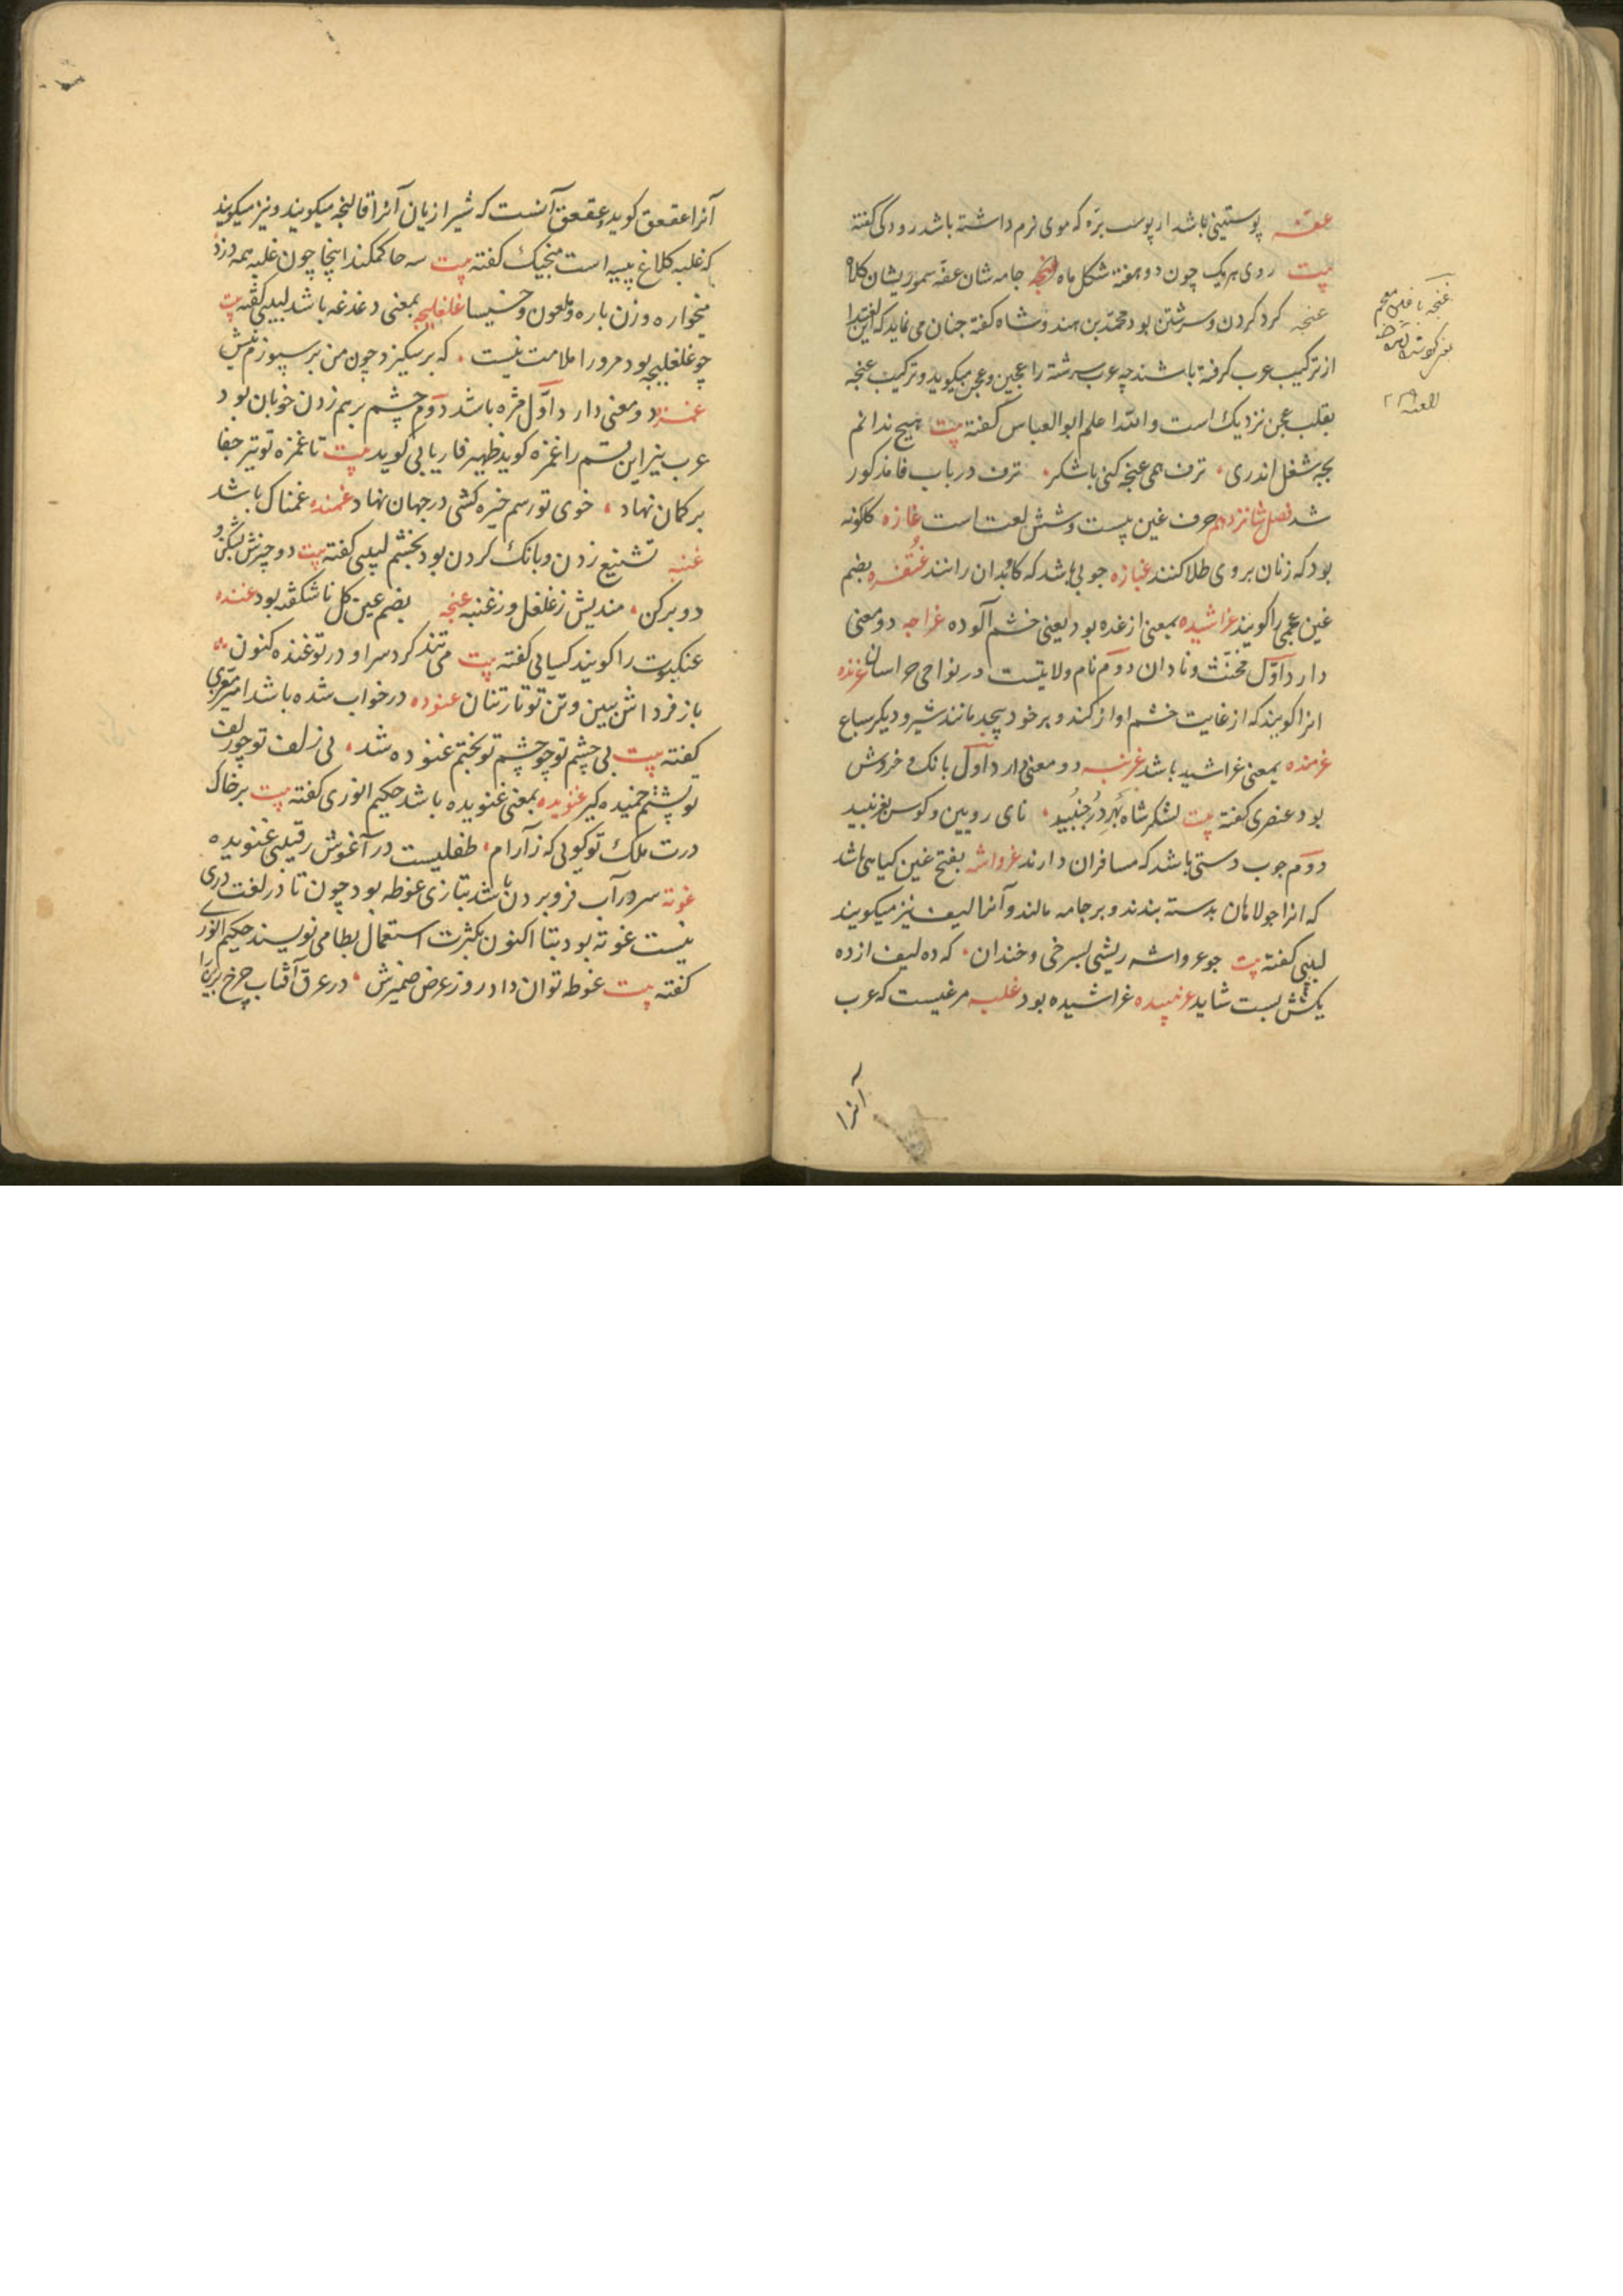 عفه پوستینی باشد از پوست بره که موی نرم داشته باشد رودکی گفته
بیت روی هر یک چون دو هفته شکل ماه جامه شان عفه سموریشان کلاه
غنجه کرد کردن و سرشتن بود محمد بن هندوشاه گفته چنان می نماید که این لغت را
از ترکیب عرب گرفته باشند چه عرب سرشته را عجین و عجن میگوید و ترکیب عنجه
بقلب عجن نزدیک است والله اعلم ابو العباس گفته بیت هیچ ندانم
بچه شغل اندری ترف همی عنجه کنی باشکر ترف در باب فا مذکور
شد فصل شانزدهم حرف غین بیست و شش لغت است غازه کلکونه
بود که زنان بر روی طلا کنند غبازه چوبی باشد که گاو بدان رانند غتفره بضم
غین عجمی را کویند غراشیده بمعنی ازغده بود یعنی خشم آلوده غراچه دو معنی
دارد اول مخنث و نادان دوم نام ولایتیست در نواحی خراسان غرنده
انرا کویند که از غایت خشم اواز کند و بر خود پیچد مانند شیر و دیگر سباع
غرمنده بمعنی غراشید باشد غرنبه دو معنی دارد اول بانک و خروش
بود عنصری گفته بیت لشکر شاه بهر در جنبید نای رویین و کوس بغرنبید
دوم چوب دستی باشد که مسافران دارند غرواشه بفتح غین کیاهی باشد
که انرا جولاهان بدسته بندند و بر جامه مالند و آنرا لیف نیز میکویند
لبیبی گفته بیت چو غرواشه ریشی بسرخی و خندان که ده لیف از ده
یکش بست شاید غرنبیده غراشیده بود غلبه مرغیست که عرب
آنرا
غنجه با غین معجم
آنرا عقعق کوید و عقعق آنست که شیرازیان آنرا قالنجه میکویند و نیز میکویند
که غلبه کلاغ پیسه است منجیک گفته بیت سه حاکمکند اینجا چون غلبه همه دزد
میخواره و زن باره و ملعون و خسیسا غلغلیجه بمعنی دغدغه باشد لبیبی گفته بیت
چو غلغلیجه بود مرورا ملامت نیست که بر سکیزد چون من بر سپوزم نیش
غمزه دو معنی دارد اول مژه باشد دوم چشم بر هم زدن خوبان بود
عرب نیز این قسم را غمزه کوید ظهیر فاریابی کوید بیت تا غمزه تو تیر جفا
بر کمان نهاد خوی تو رسم خیره کشی در جهان نهاد غمنده غمناک باشد
غنبه تشنیع زدن و بانک کردن بود بخشم لبیبی گفته بیت دو چیزش بشکن و
دو برکن مندیش ز غلغل و ز غنبه غنجه بضم غین کل ناشکفته بود غنده
عنکبوت را کویند کسایی گفته بیت می تند کرد سرا و در تو غنده کنون
باز فرداش ببین و تن تو تارتنان غنوده در خواب شده باشد امیر معزی
گفته بیت بی چشم تو چو چشم تو بختم غنوده شد بی زلف تو چو زلف
تو پشتم خمیده کیر غنویده بمعنی غنویده باشد حکیم انوری گفته بیت بر خاک
درت ملک تو کویی که ز آرام طفلیست در آغوش رقیبی غنویده
غوته سر در آب فرو بردن باشد بتازی غوطه بود چون تا در لغت دری
نیست غوته بود بتا اکنون بکثرت استعمال بطا می نویسند حکیم انوری
گفته بیت غوطه توان داد روز عرض ضمیرش در عرق آفتاب چرخ برین را